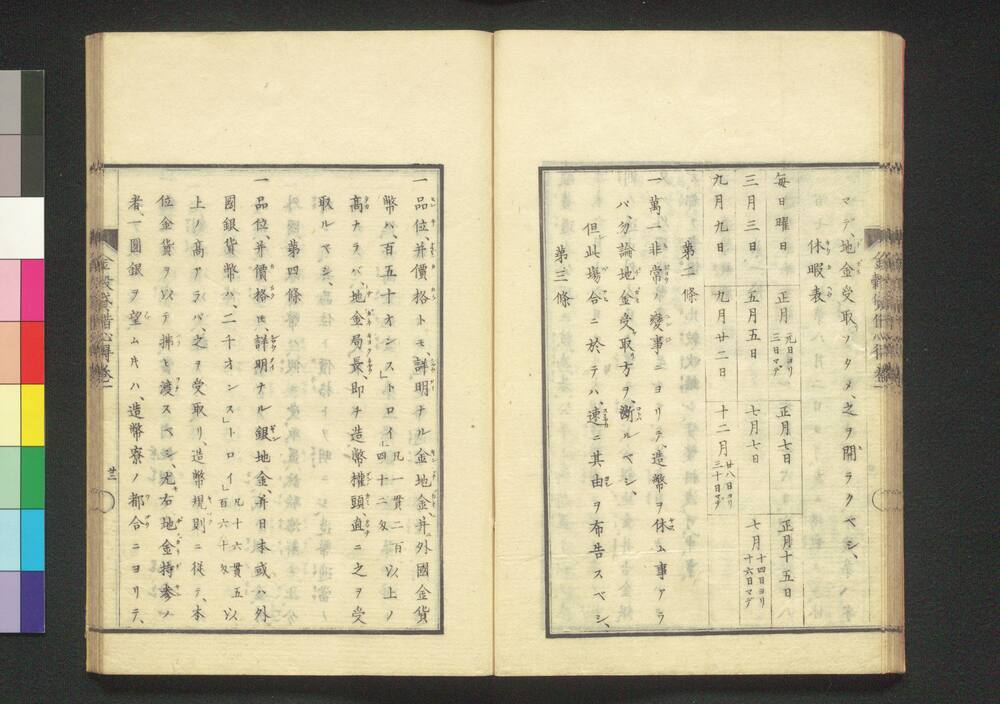 マデ、地金受取ノタメ、之ヲ開ラクベシ、
休暇表
毎日曜日 正月元日ヨリ三日マデ 正月七日 正月十五日
三月三日 五月五日 七月七日 七月十四日ヨリ十六日マデ
九月九日 九月廿二日 十二月廿八日ヨリ三十日マデ
第二條
一萬一非常ノ變事ニヨリテ、造幣ヲ休ム事アラ
バ、勿論地金受取リ方ヲ、斷ルベシ、
但此場合ニ於テハ、速ニ其由ヲ布告スベシ、
第三條
一品位、并價格トモ、詳明ナル金地金、并外國金貨
幣ハ、百五十オンストロイ」凡一貫二百四十二匁以上ノ
高ナラバ、地金局最、即チ造幣權頭直ニ之ヲ受
取ルベシ、
第四條
一品位、并價格モ、詳明ナル銀地金、并日本或ハ外
國銀貨幣ハ、二千オンス」トロイ」凡十六貫五百六十匁以
上ノ高アラバ、之ヲ受取リ、造幣規則ニ從テ、本
位金貨ヲ以テ拂ヒ渡スベシ、尤右地金持參ノ
者、一圓銀ヲ望ムキハ、造幣寮ノ都合ニヨリテ、
廿二